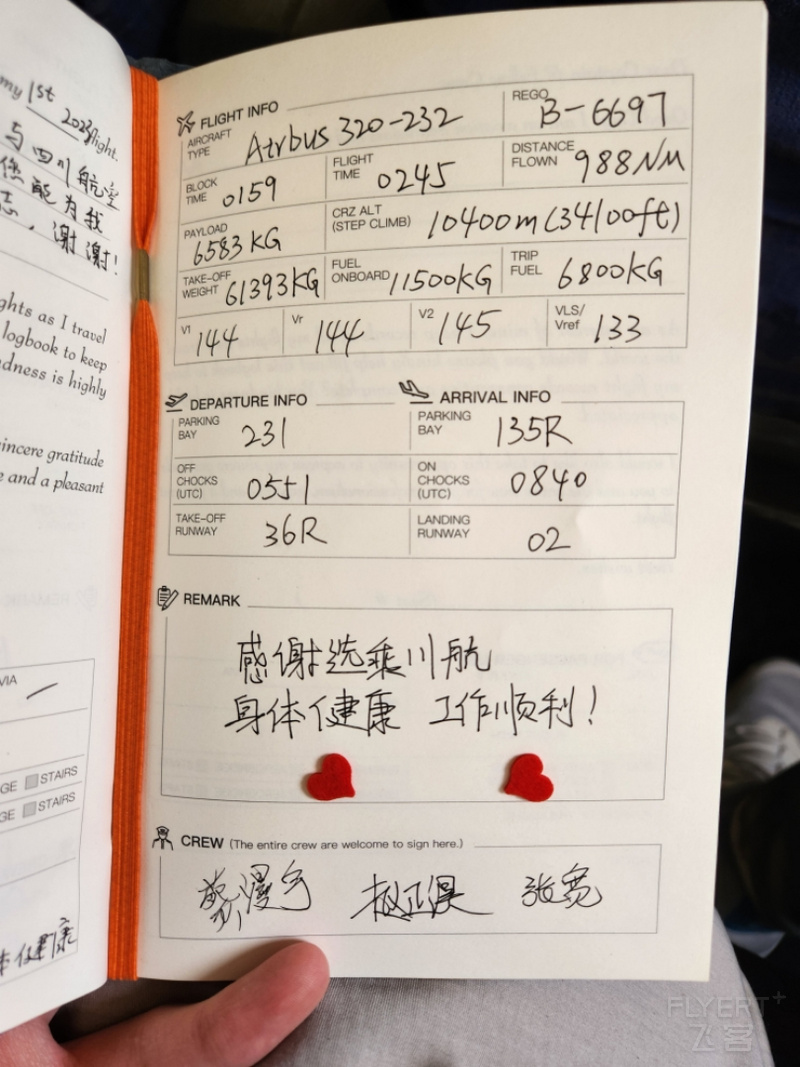 my 1st 2023 flight.
与四川航空
您能为我
志，谢谢！
ghts as I travel
logbook to keep
dness is highly
sincere gratitude
e and a pleasant
VIA —
GE STAIRS
GE STAIRS
体健康
FLIGHT INFO
AIRCRAFT TYPE Airbus 320-232
REGO B-6697
BLOCK TIME 0159
FLIGHT TIME 0245
DISTANCE FLOWN 988NM
PAYLOAD 6583KG
CRZ ALT (STEP CLIMB) 10400m(34100ft)
TAKE-OFF WEIGHT 61393KG
FUEL ONBOARD 11500KG
TRIP FUEL 6800KG
V1 144
Vr 144
V2 145
VLS/Vref 133
DEPARTURE INFO
PARKING BAY 231
OFF CHOCKS (UTC) 0551
TAKE-OFF RUNWAY 36R
ARRIVAL INFO
PARKING BAY 135R
ON CHOCKS (UTC) 0840
LANDING RUNWAY 02
REMARK
感谢选乘川航
身体健康 工作顺利！
CREW (The entire crew are welcome to sign here.)
张宽
FLYERT+
飞客